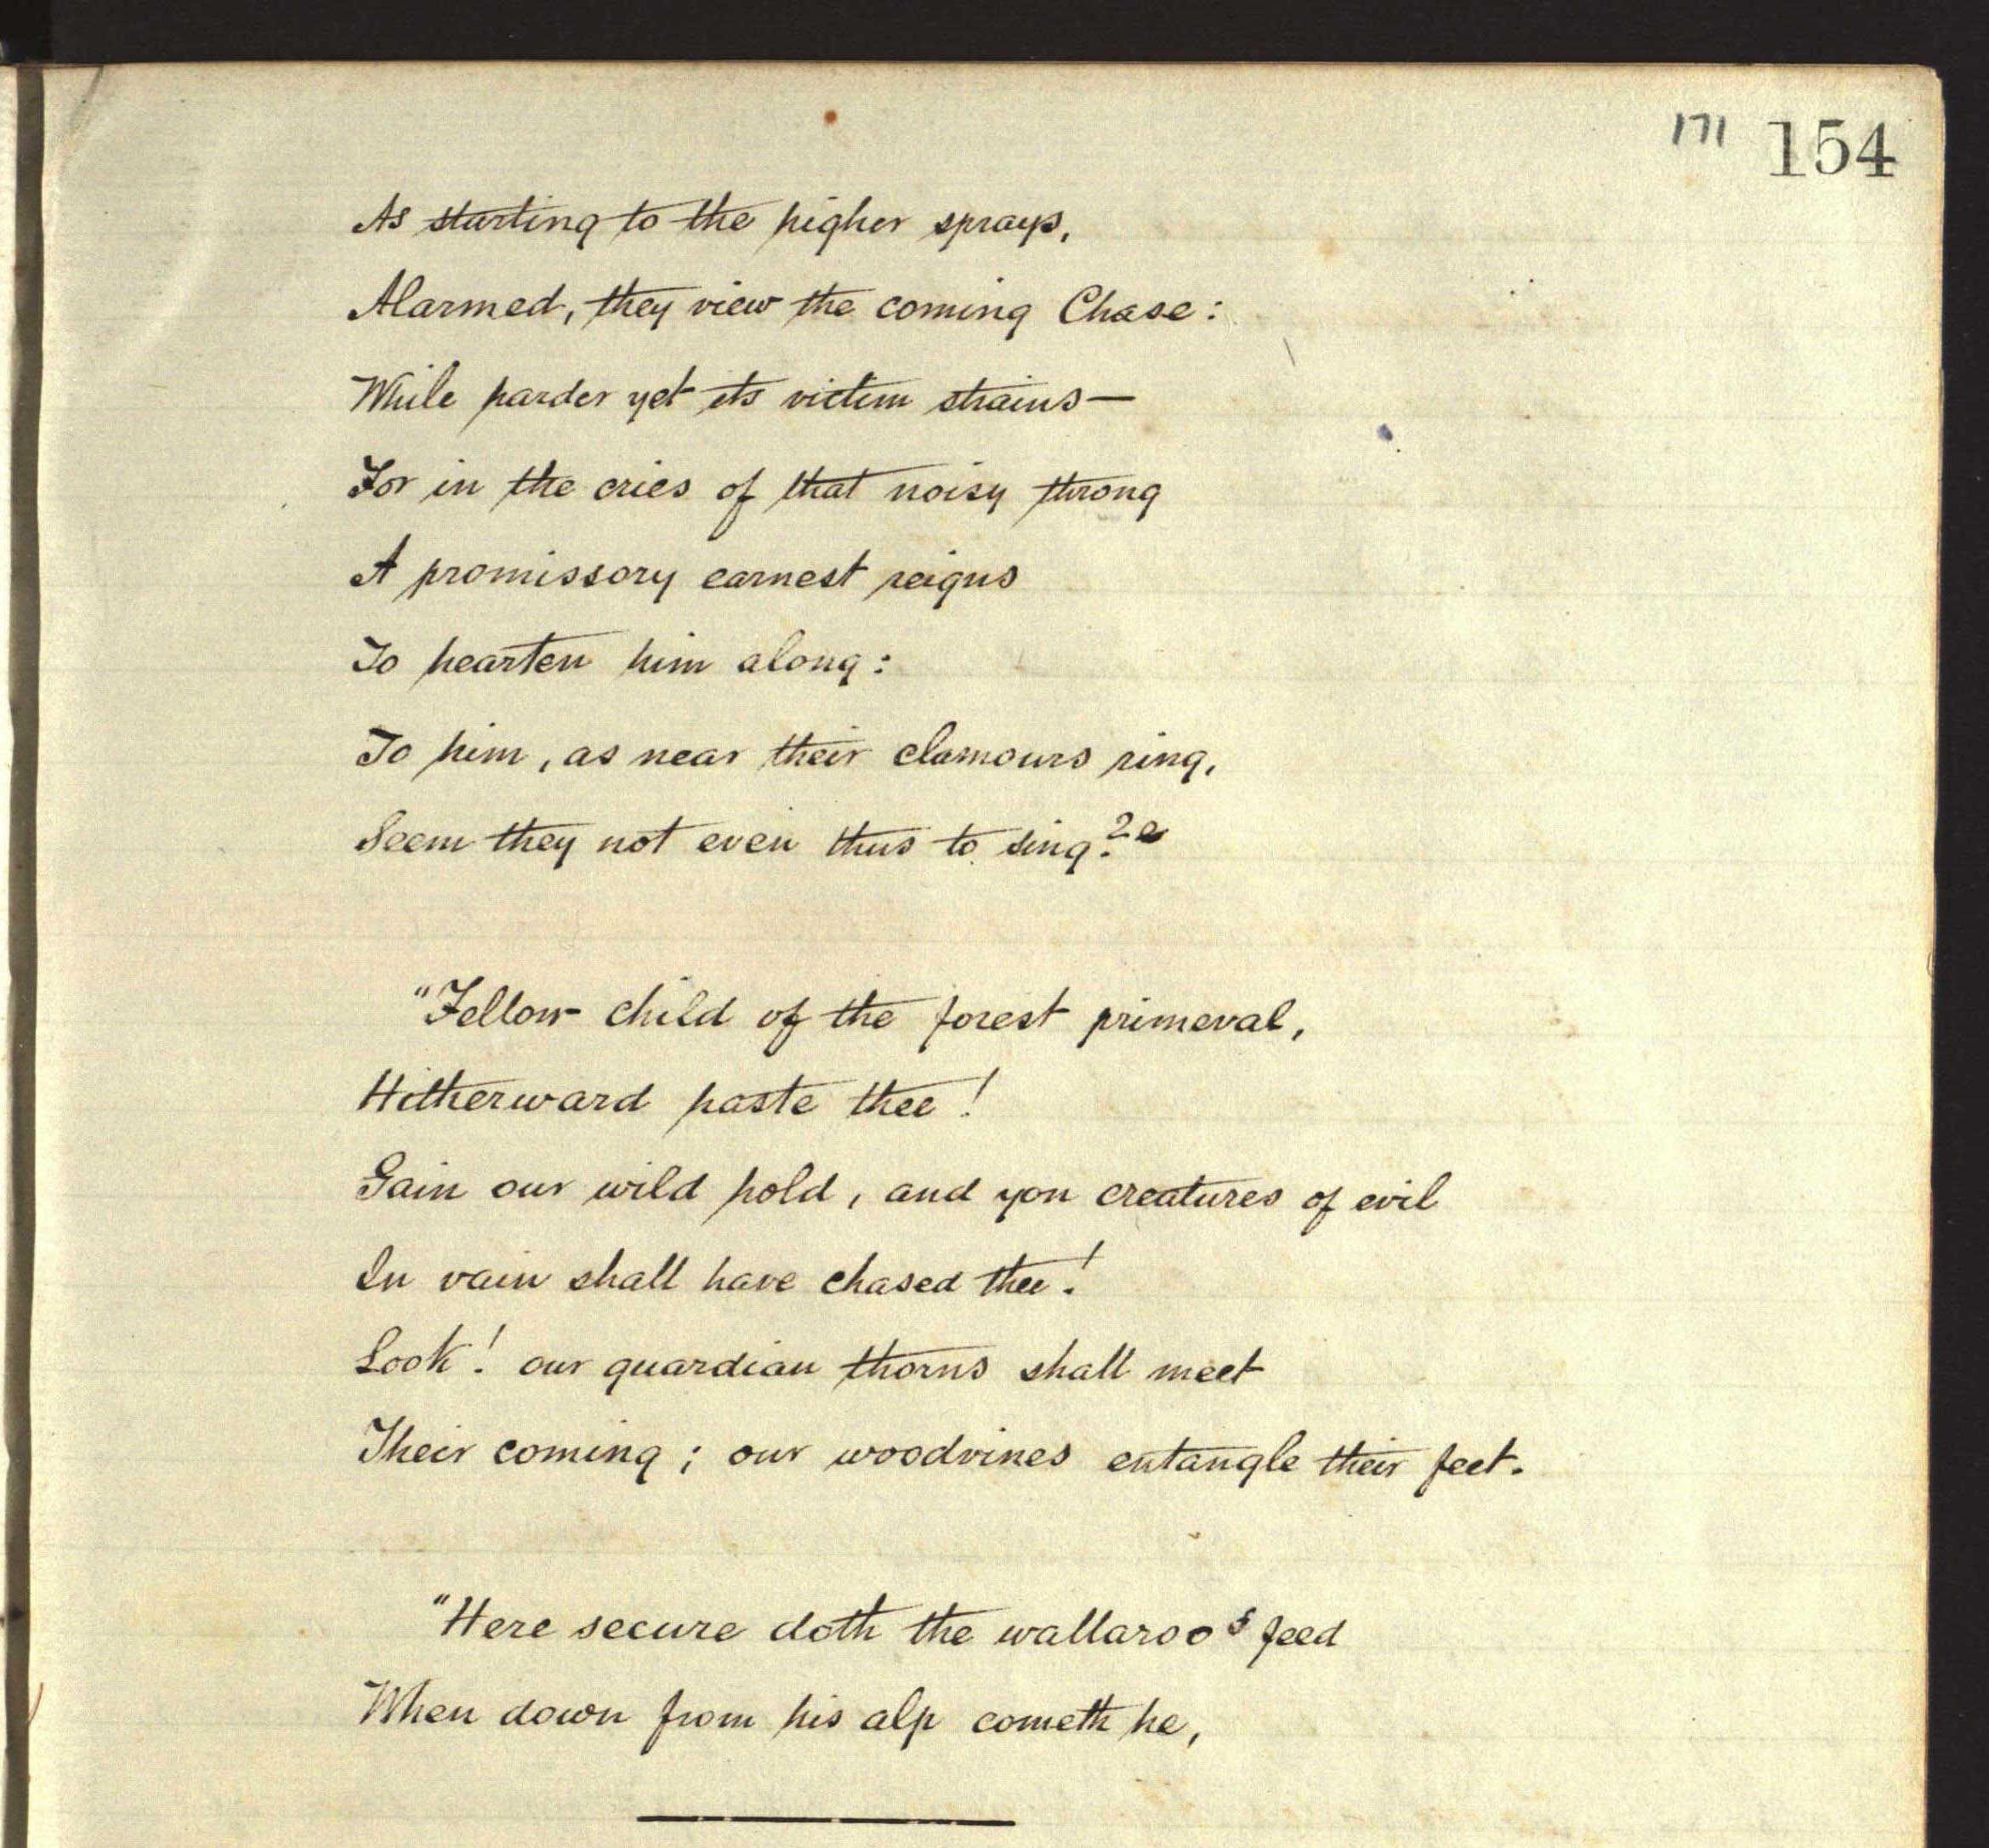 171 154
As starting to the higher sprays,
Alarmed, they view the coming Chase:
While harder yet its victim strains—
For in the cries of that noisy throng
A promissory earnest reigns
To hearten him along:
To him, as near their clamours ring,
Seem they not even thus to sing?
"Fellow child of the forest primeval,
Hitherward haste thee!
Gain our wild hold, and yon creatures of evil
In vain shall have chased thee!
Look! our guardian thorns shall meet
Their coming; our woodvines entangle their feet.
"Here secure doth the wallaroo 5 feed
When down from his alp cometh he,